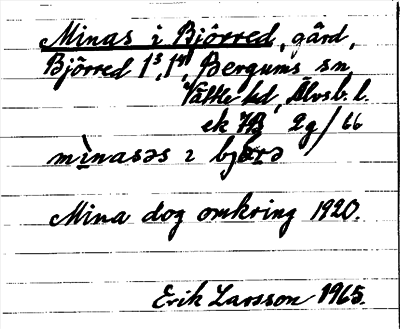 Minas i Björred, gård,
Björred 1³, 1⁴, Bergums sn,
Vättle hd, Älvsb. l.
ek 7B 2g/66
mìnasəs ɪ bjɶrə
Mina dog omkring 1920.
Erik Larsson 1965.